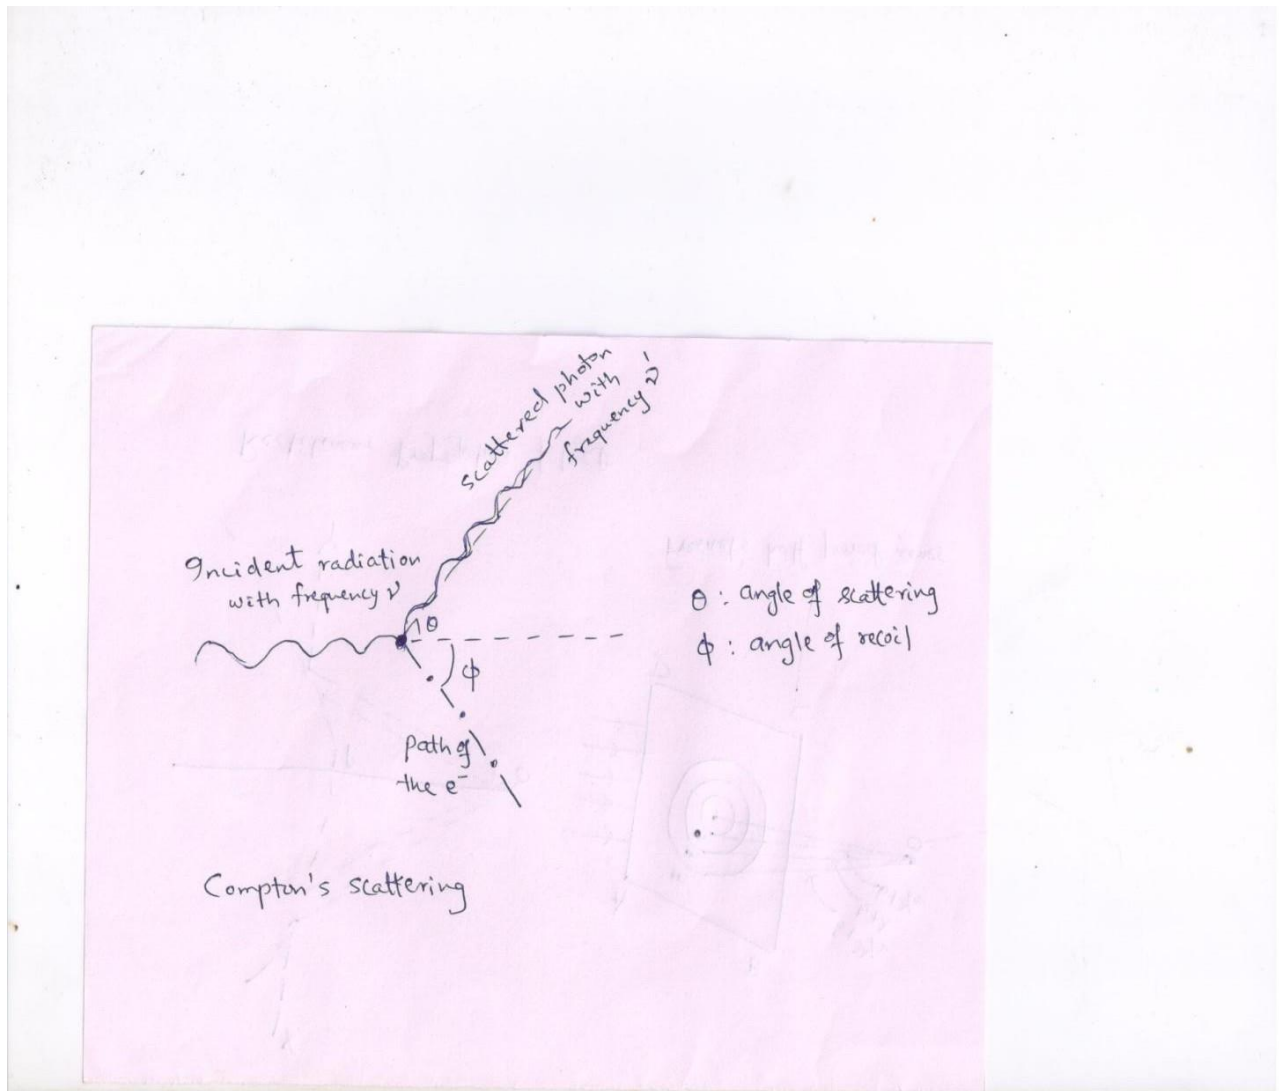 scattered photon
with
frequency ν'
Incident radiation
with frequency ν
θ
ϕ
path of
the e⁻
θ : angle of scattering
ϕ : angle of recoil
Compton's scattering